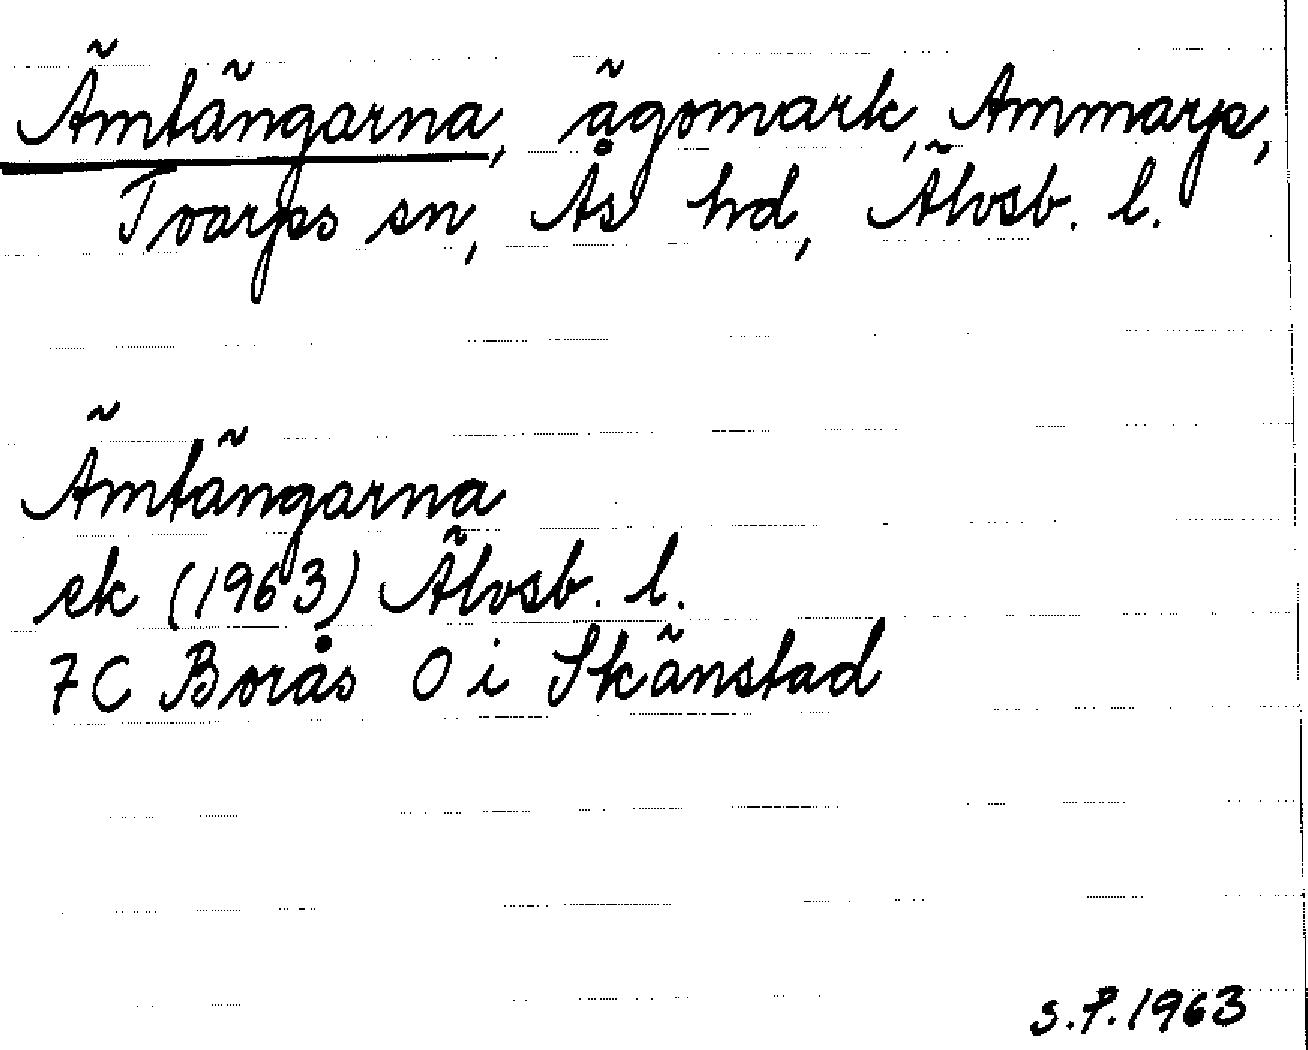 Ämtängarna, ägomark, Ammarp,
Tvarps sn, Ås hd, Älvsb. l.
Ämtängarna
ek (1963) Älvsb. l.
7C Borås O i Skänstad
S.P. 1963